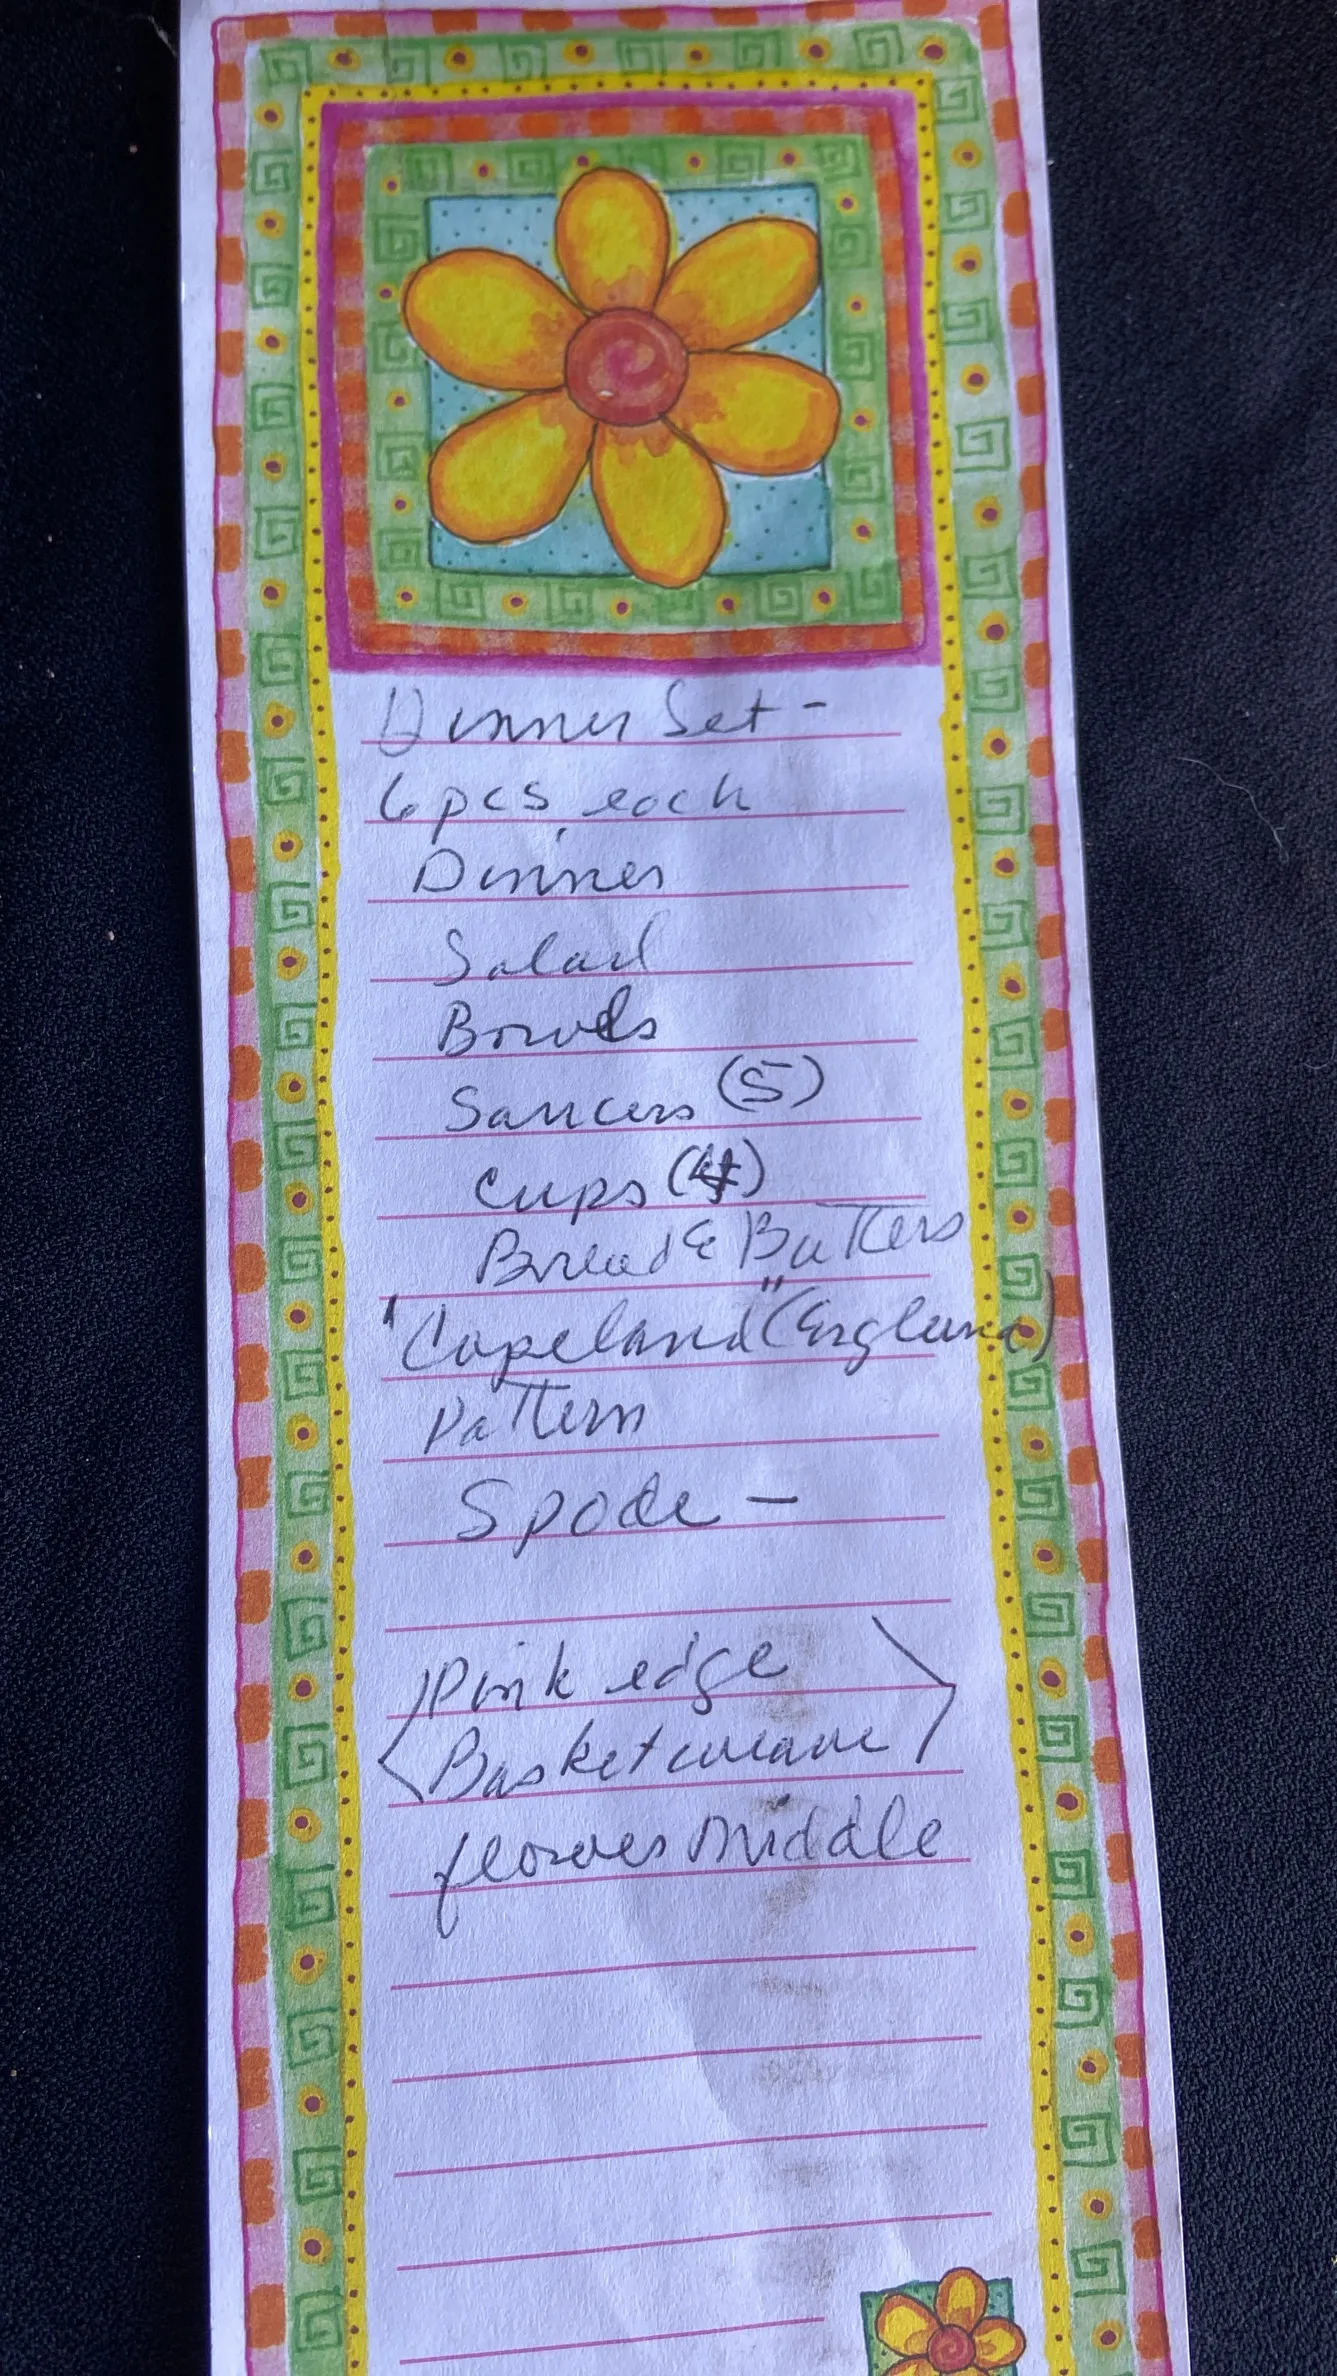 Dinner Set -
6 pcs, each
Dinner
Salad
Bowls
Saucers (5)
Cups (4)
Bread & Butters
"Copeland" (England)
Pattern
Spode -
Pink edge
Basketweave
flower middle